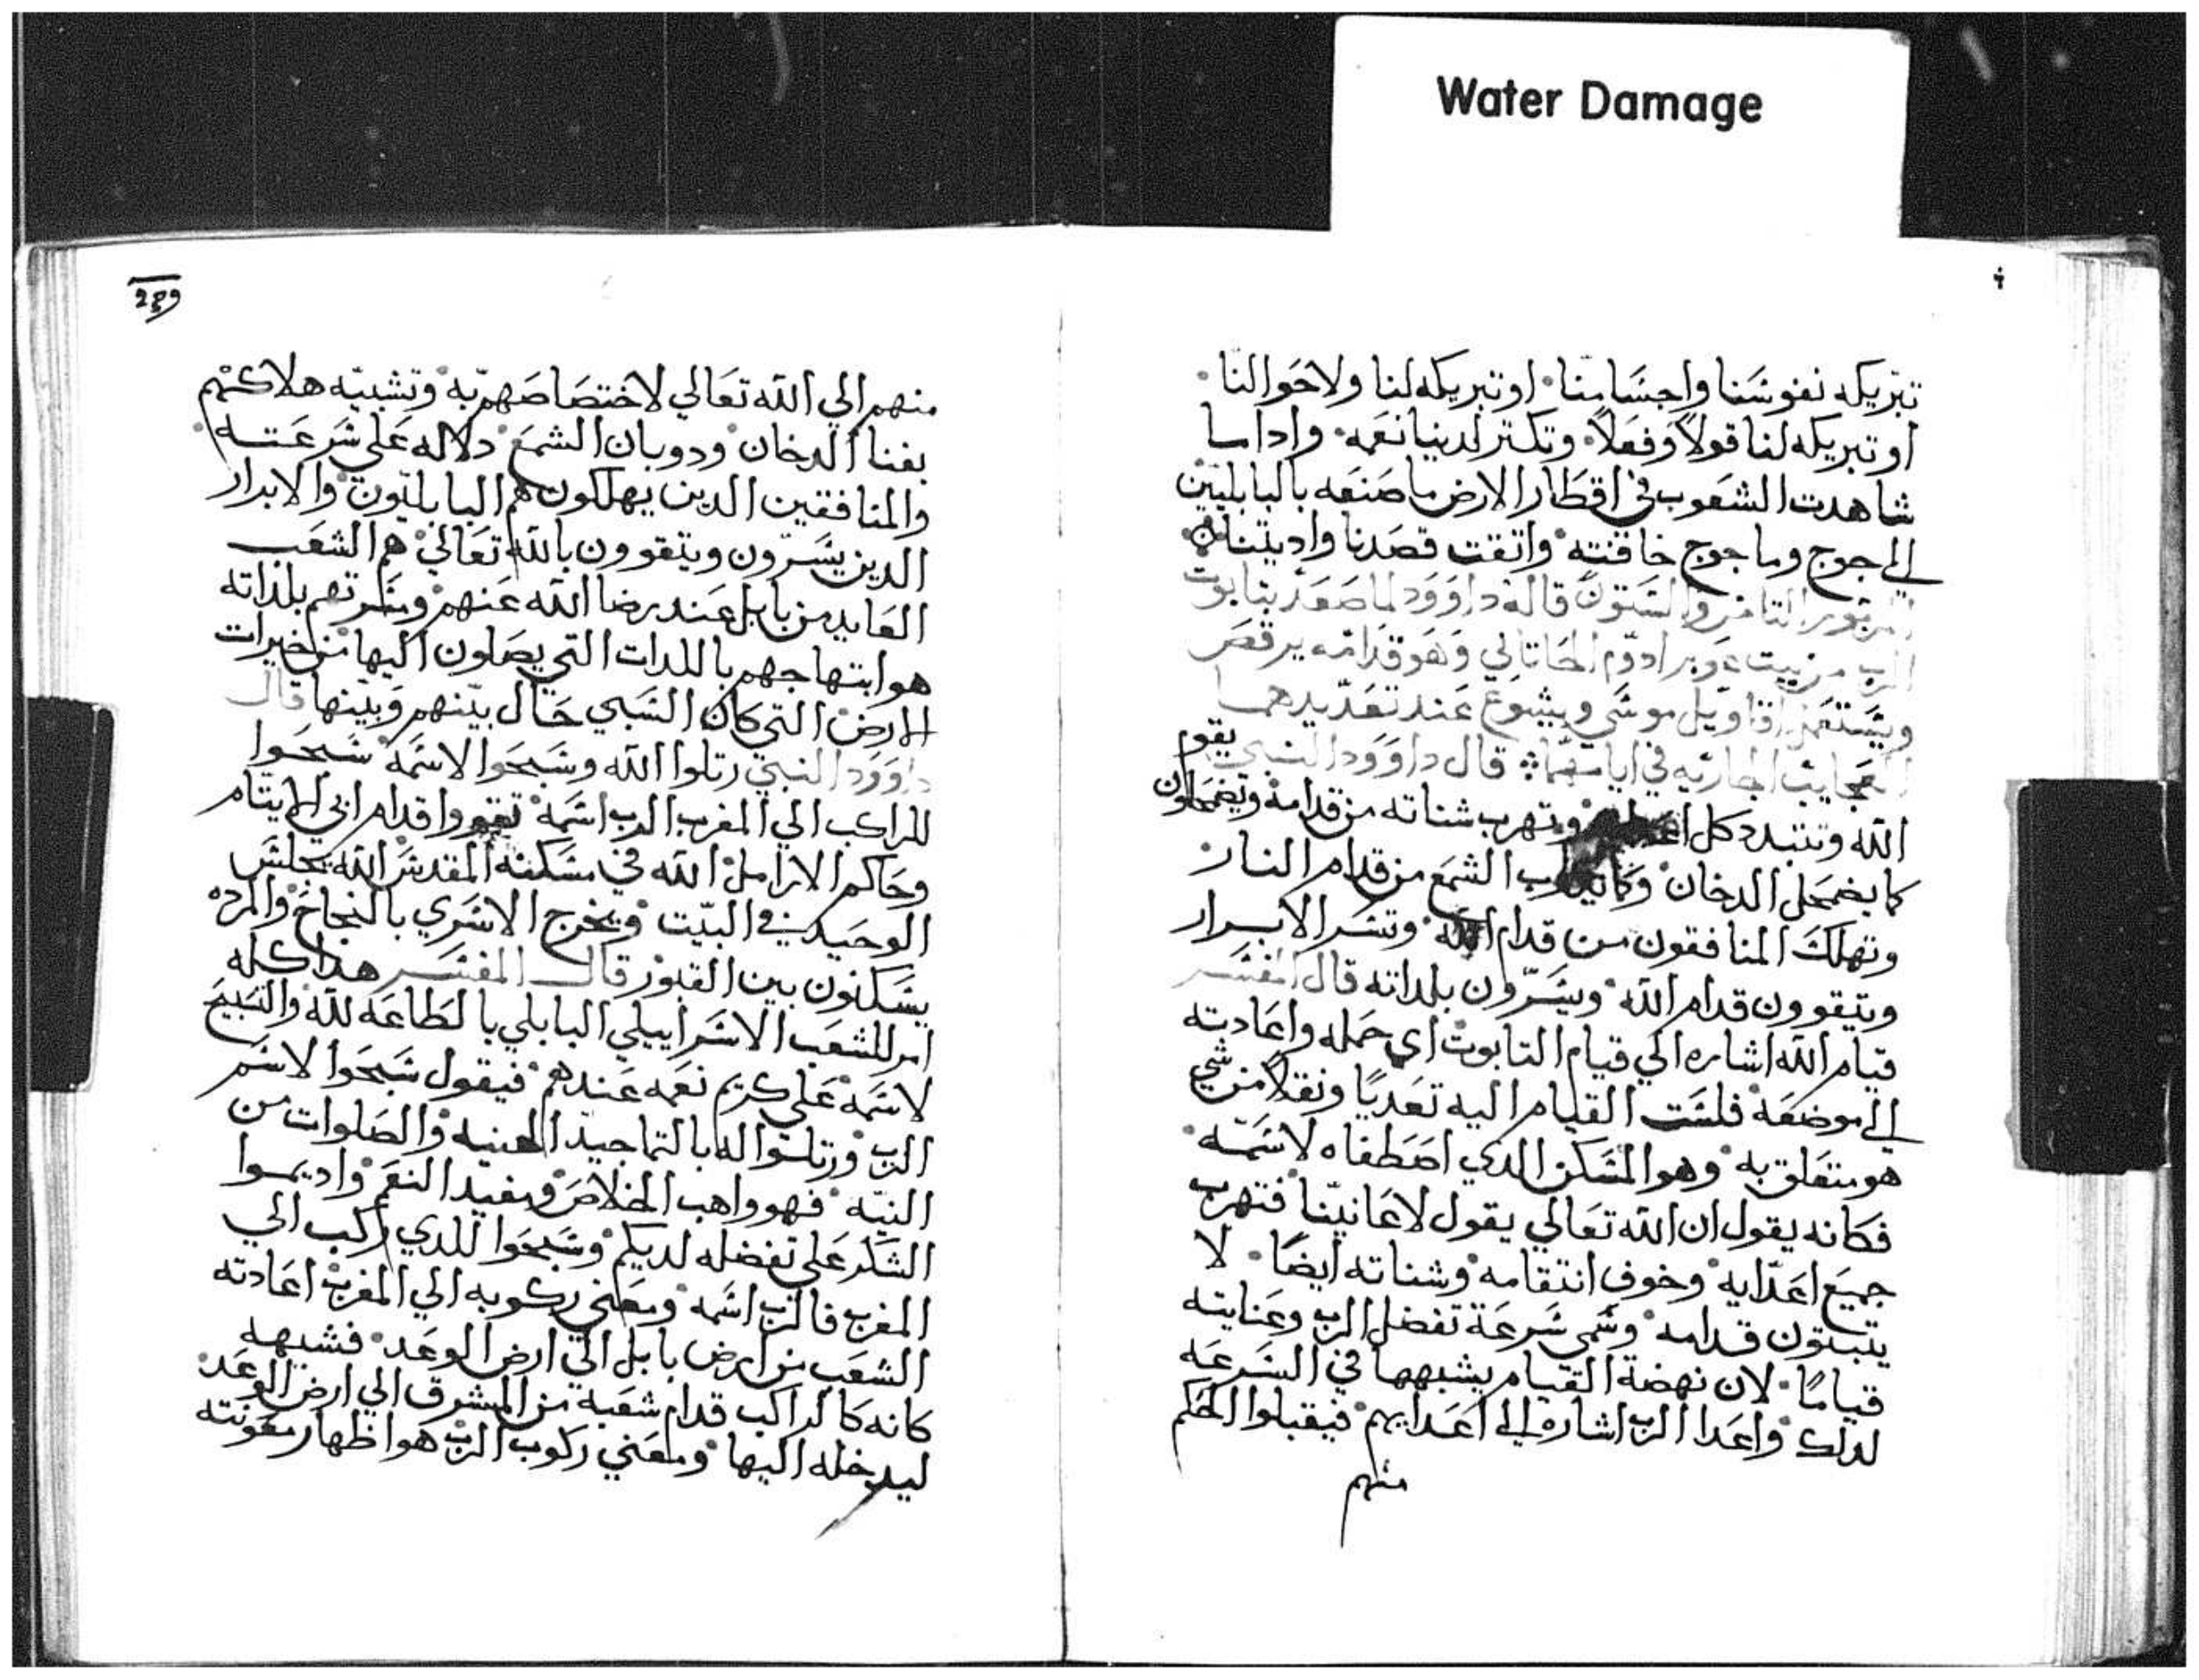 Water Damage
تبريكه نفوسنا واجسامنا او تبريكه لنا ولاحوالنا
او تبريكه لنا قولاً وفعلاً وتكتر لدينا نعمه واداسا
شاهدت الشعوب في اقطار الارض ما صنعه بالبابليين
الي جوج وماجوج خافته واتقت قصدنا واديتنا
المزمور التامن والستون قاله داوود لما صعد بتابوت
الرب من بيت عوبرادوم الجاتالي وهو قدامه يرقص
ويستعمل اقاويل موسي ويشوع عند تعديدهما
العجايب الجاريه في ايامهما قال داوود النبي يقوم
الله وتتبدد كل اعدايه وتهرب شناته من قدامه ويضمحلون
كما يضمحل الدخان وكما يدوب الشمع من قدام النار
وتهلك المنافقون من قدام الله وتسر الابرار
ويتقوون قدام الله ويسرون بلداته قال المفسر
قيام الله اشاره الي قيام التابوت اي حمله واعادته
الي موضعه فلست القيام اليه تعديًا ونقلاً من شي
هو متعلق به وهو المسكن الدي اصطفاه لاسمه
فكانه يقول ان الله تعالي يقول لاعانيتنا فتهرب
جميع اعدايه وخوف انتقامه وشناته ايضًا لا
يتبتون قدامه وسمي سرعة تفضل الرب وعنايته
قيامًا لان نهضة القيام يشبهها في السرعه
لدلك واعدا الرب اشاره الي اعدايهم فيقبلوا الحكم
منهم
289
منهم الي الله تعالي لاختصاصهم به وتشبيه هلاكهم
بفنا الدخان ودوبان الشمع دلاله علي سرعته
والمنافقين الدين يهلكون هم البابليون والابرار
الدين يسرون ويتقوون بالله تعالي هم الشعب
العايد من بابل عند رضا الله عنهم وسرتهم بلداته
هو ابتهاجهم باللدات التي يصلون اليها من خيرات
الارض التي كان السبي حال بينهم وبينها قال
داوود النبي رتلوا الله وسبحوا لاسمه سبحوا
للراكب الي المغرب الرب اسمه تقووا قدام ابي الايتام
وحاكم الارامل الله في مسكنه المقدس الله يجلس
الوحيد في البيت ويخرج الاسري بالنجاح والمرده
يسكنون بين القبور قال المفسر هدا كله
امر للشعب الاسراييلي البابلي بالطاعه لله والتسبيح
لاسمه علي كريم نعمه عندهم فيقول سبحوا لاسم
الرب ورتلوا له بالتماجيد الهنيه والصلوات من
النيه فهو واهب الخلاص ومفيد النعم واديموا
الشكر علي تفضله لديكم وسبحوا للدي ركب الي
المغرب فالرب اسمه ومعني ركوبه الي المغرب اعادته
الشعب من ارض بابل الي ارض الوعد فشبهه
كانه كالراكب قدام شعبه من المشرق الي ارض الوعد
ليدخله اليها ومعني ركوب الرب هو اظهار معونته